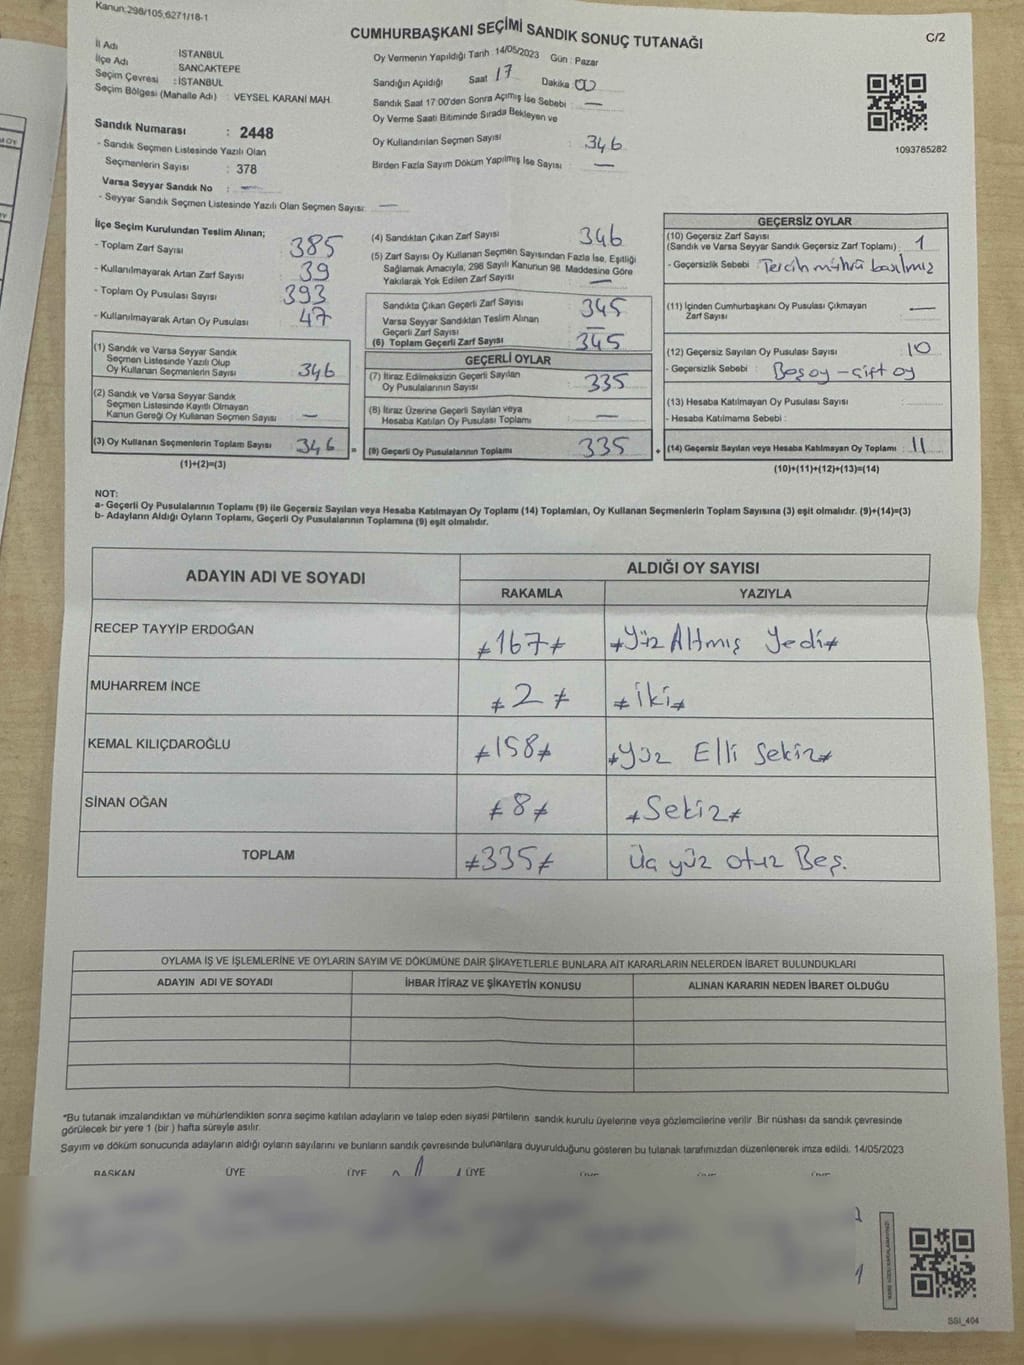 Kanun:298/105,6271/18-1
CUMHURBAŞKANI SEÇİMİ SANDIK SONUÇ TUTANAĞI
C/2
İl Adı : İSTANBUL
İlçe Adı : SANCAKTEPE
Seçim Çevresi : İSTANBUL
Seçim Bölgesi (Mahalle Adı) : VEYSEL KARANİ MAH.
Sandık Numarası : 2448
- Sandık Seçmen Listesinde Yazılı Olan
Seçmenlerin Sayısı : 378
Varsa Seyyar Sandık No : —
- Seyyar Sandık Seçmen Listesinde Yazılı Olan Seçmen Sayısı: —
Oy Vermenin Yapıldığı Tarih 14/05/2023 Gün : Pazar
Sandığın Açıldığı Saat 17 Dakika 00
Sandık Saat 17:00'den Sonra Açımış İse Sebebi : —
Oy Verme Saati Bitiminde Sırada Bekleyen ve
Oy Kullandırılan Seçmen Sayısı : 346
Birden Fazla Sayım Döküm Yapılmış İse Sayısı : —
1093785282
İlçe Seçim Kurulundan Teslim Alınan;
- Toplam Zarf Sayısı : 385
- Kullanılmayarak Artan Zarf Sayısı : 39
- Toplam Oy Pusulası Sayısı : 393
- Kullanılmayarak Artan Oy Pusulası : 47
(1) Sandık ve Varsa Seyyar Sandık
Seçmen Listesinde Yazılı Olup
Oy Kullanan Seçmenlerin Sayısı : 346
(2) Sandık ve Varsa Seyyar Sandık
Seçmen Listesinde Kayıtlı Olmayan
Kanun Gereği Oy Kullanan Seçmen Sayısı : —
(3) Oy Kullanan Seçmenlerin Toplam Sayısı : 346 =
(1)+(2)=(3)
(4) Sandıktan Çıkan Zarf Sayısı : 346
(5) Zarf Sayısı Oy Kullanan Seçmen Sayısından Fazla İse, Eşitliği
Sağlamak Amacıyla, 298 Sayılı Kanunun 98. Maddesine Göre
Yakılarak Yok Edilen Zarf Sayısı : —
Sandıkta Çıkan Geçerli Zarf Sayısı : 345
Varsa Seyyar Sandıktan Teslim Alınan
Geçerli Zarf Sayısı : —
(6) Toplam Geçerli Zarf Sayısı : 345
GEÇERLİ OYLAR
(7) İtiraz Edilmeksizin Geçerli Sayılan
Oy Pusulalarının Sayısı : 335
(8) İtiraz Üzerine Geçerli Sayılan veya
Hesaba Katılan Oy Pusulası Toplamı : —
(9) Geçerli Oy Pusulalarının Toplamı : 335 +
GEÇERSİZ OYLAR
(10) Geçersiz Zarf Sayısı
(Sandık ve Varsa Seyyar Sandık Geçersiz Zarf Toplamı) : 1
- Geçersizlik Sebebi : Tercih mührü basılmış
(11) İçinden Cumhurbaşkanı Oy Pusulası Çıkmayan
Zarf Sayısı : —
(12) Geçersiz Sayılan Oy Pusulası Sayısı : 10
- Geçersizlik Sebebi : Boş oy - Çift oy
(13) Hesaba Katılmayan Oy Pusulası Sayısı :
- Hesaba Katılmama Sebebi :
(14) Geçersiz Sayılan veya Hesaba Katılmayan Oy Toplamı : 11
(10)+(11)+(12)+(13)=(14)
NOT:
a- Geçerli Oy Pusulalarının Toplamı (9) ile Geçersiz Sayılan veya Hesaba Katılmayan Oy Toplamı (14) Toplamları, Oy Kullanan Seçmenlerin Toplam Sayısına (3) eşit olmalıdır. (9)+(14)=(3)
b- Adayların Aldığı Oyların Toplamı, Geçerli Oy Pusulalarının Toplamına (9) eşit olmalıdır.
ADAYIN ADI VE SOYADI
ALDIĞI OY SAYISI
RAKAMLA
YAZIYLA
RECEP TAYYİP ERDOĞAN ≠167≠ ≠Yüz Altmış Yedi≠
MUHARREM İNCE ≠2≠ ≠iki≠
KEMAL KILIÇDAROĞLU ≠158≠ ≠Yüz Elli Sekiz≠
SİNAN OĞAN ≠8≠ ≠Sekiz≠
TOPLAM ≠335≠ Üç yüz otuz Beş.
OYLAMA İŞ VE İŞLEMLERİNE VE OYLARIN SAYIM VE DÖKÜMÜNE DAİR ŞİKAYETLERLE BUNLARA AİT KARARLARIN NELERDEN İBARET BULUNDUKLARI
ADAYIN ADI VE SOYADI
İHBAR İTİRAZ VE ŞİKAYETİN KONUSU
ALINAN KARARIN NEDEN İBARET OLDUĞU
*Bu tutanak imzalandıktan ve mühürlendikten sonra seçime katılan adayların ve talep eden siyasi partilerin sandık kurulu üyelerine veya gözlemcilerine verilir. Bir nüshası da sandık çevresinde
görülecek bir yere 1 (bir ) hafta süreyle asılır.
Sayım ve döküm sonucunda adayların aldığı oyların sayılarını ve bunların sandık çevresinde bulunanlara duyurulduğunu gösteren bu tutanak tarafımızdan düzenlenerek imza edildi. 14/05/2023
BAŞKAN ÜYE ÜYE ÜYE
SSI_404